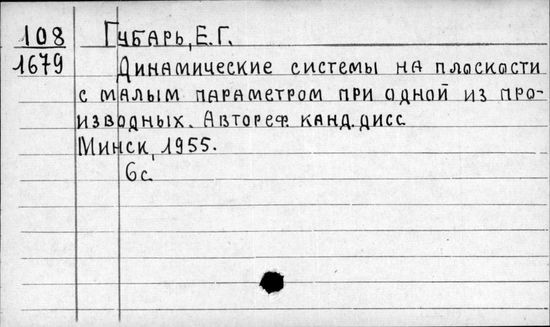 108 Губарь, Е.Г.
1679 Динамические системы на плоскости
с малым параметром при одной из про-
изводных. Автореф. канд. дисс.
Минск, 1955.
6с.